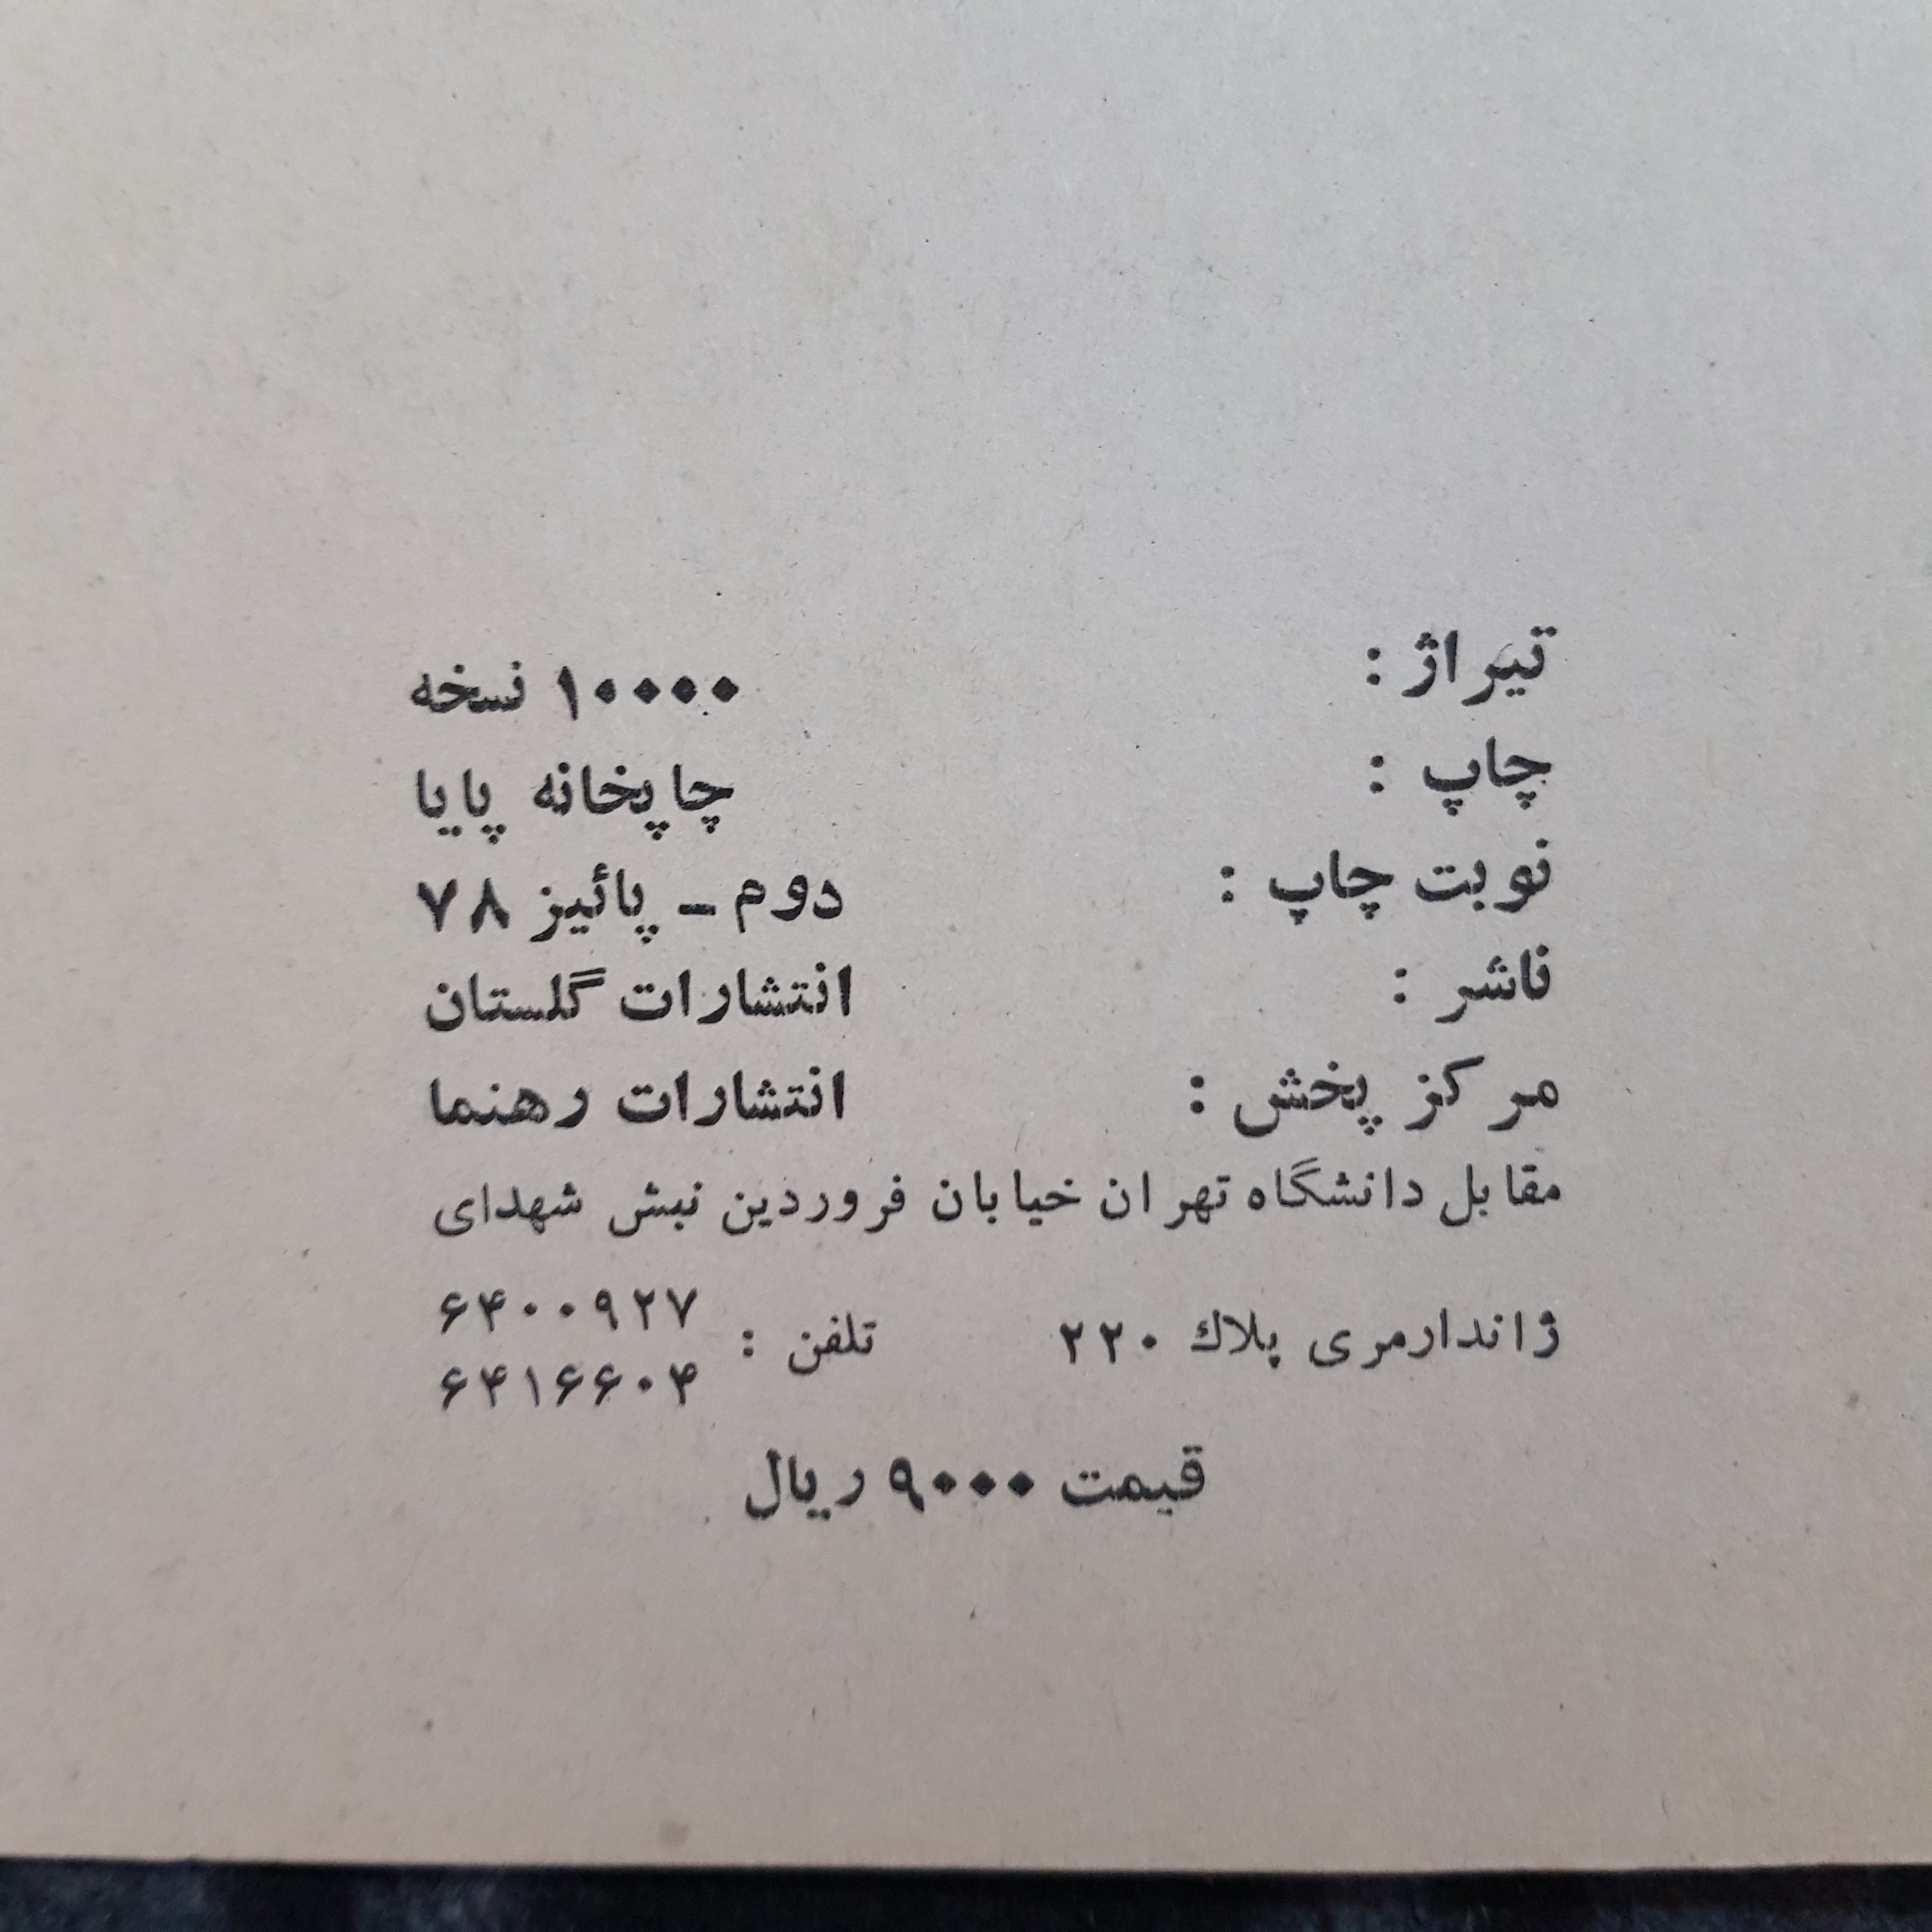 تیراژ : ۱۰۰۰۰ نسخه
چاپ : چاپخانه پایا
نوبت چاپ : دوم ـ پائیز ۷۸
ناشر : انتشارات گلستان
مرکز پخش : انتشارات رهنما
مقابل دانشگاه تهران خیابان فروردین نبش شهدای
ژاندارمری پلاك ۲۲۰ تلفن : ۶۴۰۰۹۲۷
۶۴۱۶۶۰۴
قیمت ۹۰۰۰ ریال